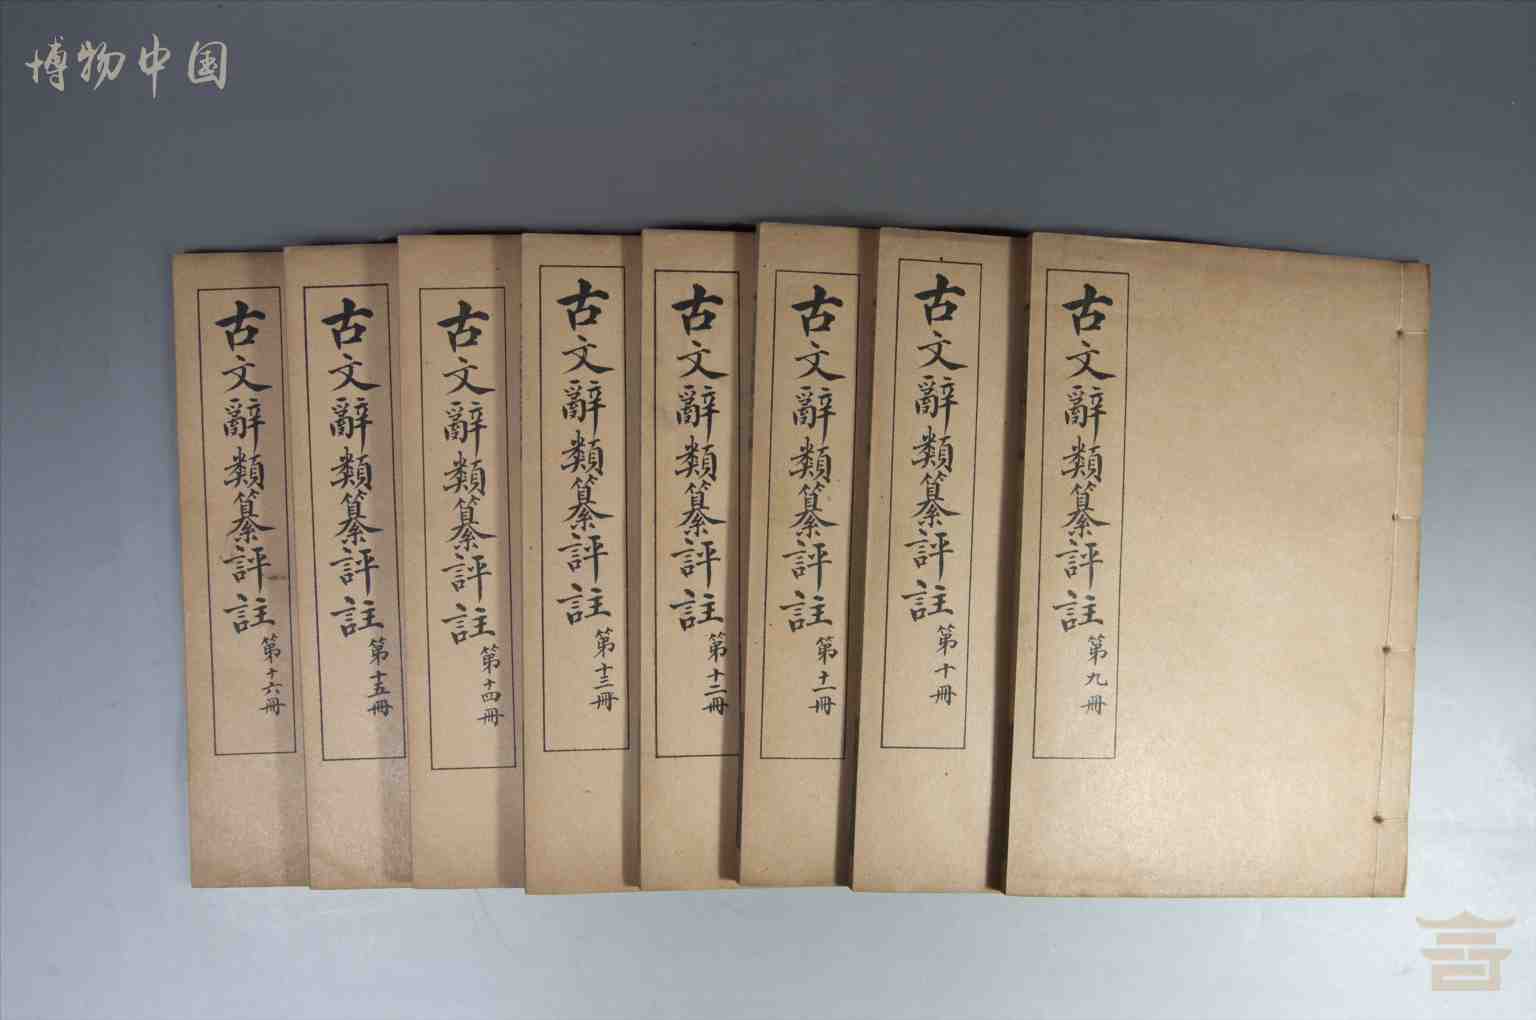 博物中国
古文辭類纂評註 第九冊
古文辭類纂評註 第十冊
古文辭類纂評註 第十一冊
古文辭類纂評註 第十二冊
古文辭類纂評註 第十三冊
古文辭類纂評註 第十四冊
古文辭類纂評註 第十五冊
古文辭類纂評註 第十六冊